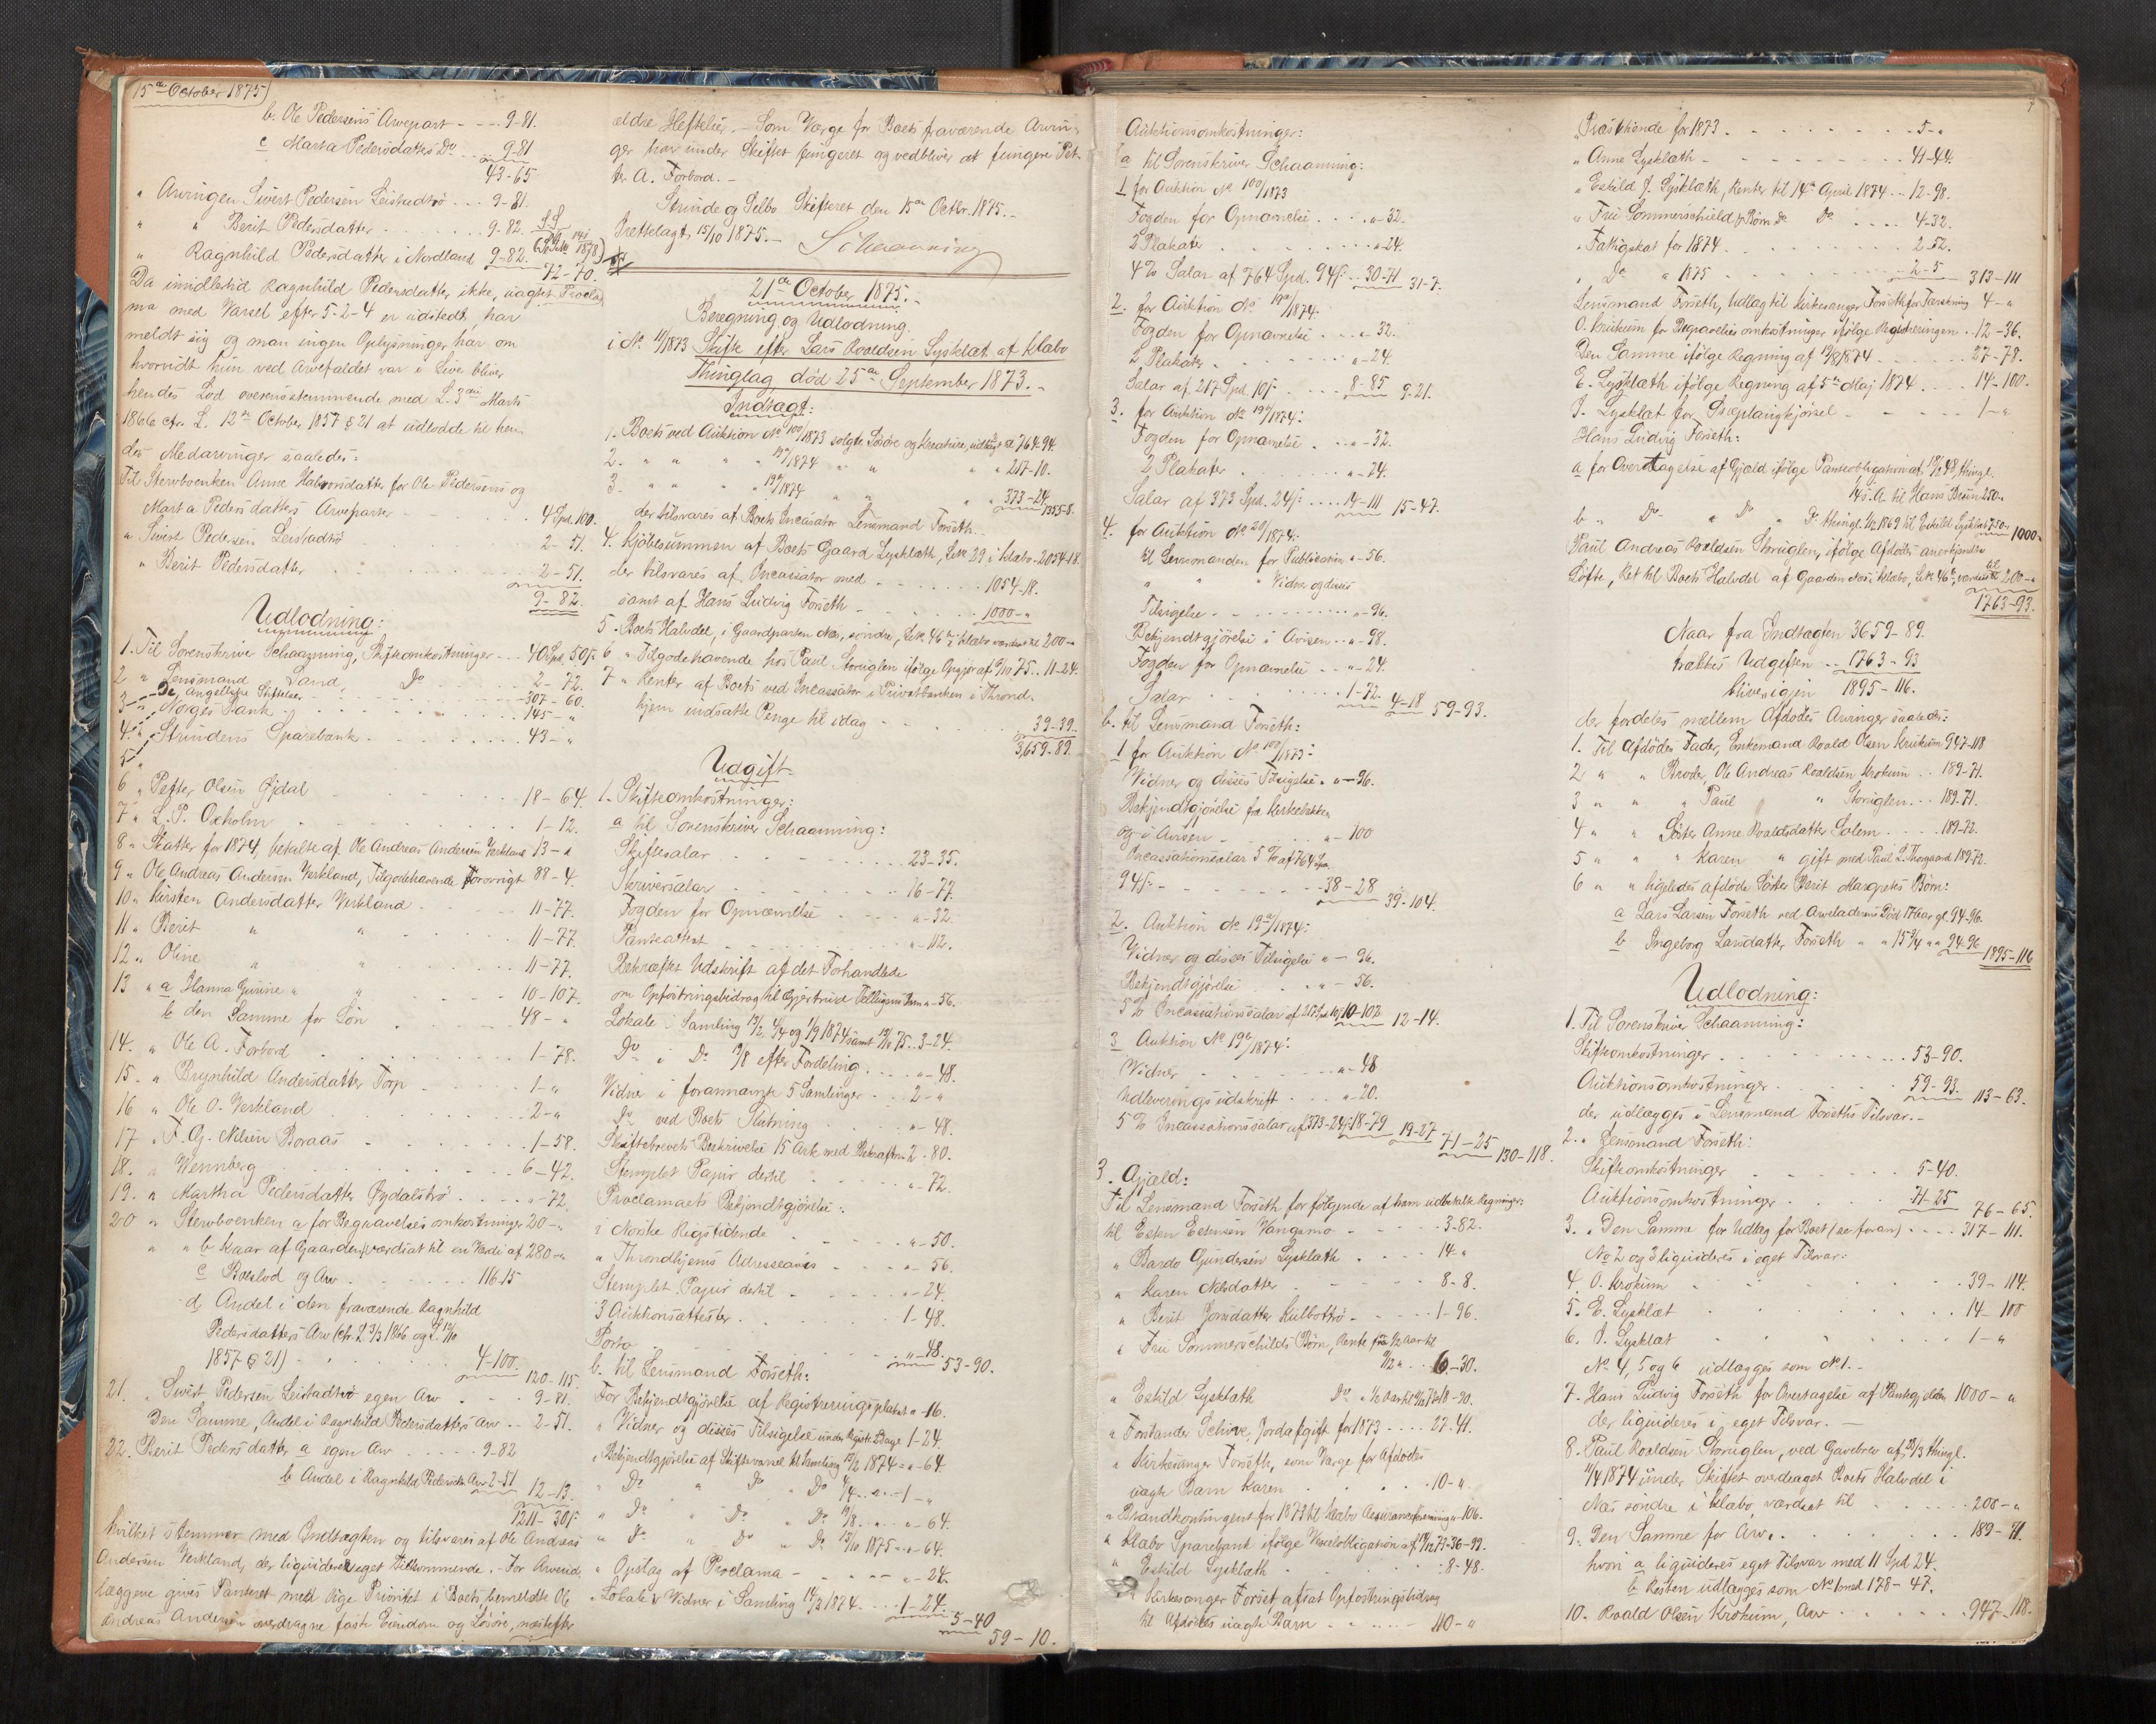 15de October 1875)
b. Ole Pedersens Arvepart - - - 9-81.
c Marta Pedersdatters Do - - - 9-81
43-65
" Arvingen Sivert Pedersen Leistadtrø - - - 9-81.
" " Berit Pedersdatter - - - 9-82.
" Ragnhild Pedersdatter i Nordland 9-82.
72-70.
Da imidlertid Ragnhild Pedersdatter ikke, uagtet Procla
ma med Varsel efter 5-2-4 er udstedt, har
meldt sig og man ingen Oplysninger har om
hvorvidt hun ved Arvefaldet var i Live bliver
hendes Lod overensstemmende med L. 3die Marts
1866 cfr. L. 12te October 1857 § 21 at udlodde til hen
des Medarvinger saaledes:
Til Stervboenken Anne Halvorsdatter for Ole Pedersens og
Marta Pedersdatters Arveparter - - - 4 Spd. 100.
" Sivert Pedersen Leistadtrø - - - 2-51.
" Berit Pedersdatter - - - 2-51.
9-82.
Udlodning:
1. Til Sorenskriver Schaanning, Skifteomkostninger - - 40 Spd. 50 s.
2 " Lensmand Sand, Do - - - 2-72.
3 " De Angellske Stiftelser - - - 307-60.
4. " Norges Bank - - - 145-"
5 " Strindens Sparebank - - - 43-"
6 " Petter Olsen Gjdal - - - 18-64.
7 " L. P. Oxholm - - - 1-12.
8 " Skatter for 1874, betalte af Ole Andreas Andersen Verkland 13-"
9 " Ole Andreas Andersen Verkland, Tilgodehavende forøvrigt 88-4.
10 " Kirsten Andersdatter Verkland - - - 11-77.
11 " Berit " " - - - 11-77.
12 " Oline " " - - - 11-77.
13 " a Hanna Gurine " " - - - 10-107.
b den Samme for Løn - - - 48-"
14. " Ole A. Forbord - - - 1-78.
15. " Brynhild Andersdatter Torp - - - 1-"
16 " Ole O. Verkland - - - 2-"
17. " F. Gj. Nelsen Boraas - - - 1-58.
18. " Wennberg - - - 6-42.
19. " Martha Pedersdatter Øydalstrø - - - "-72.
20 " Stervboenken a for Begravelsesomkostninger 20-"
" " b Kaar af Gaarden, værdsat til en Værdi af 280-"
c Boeslod og Arv - - - 116.15
d Andel i den fraværende Ragnhild
Pedersdatters Arv (cfr. L. 3/3 1866 og L. 12/10
1857 § 21) - - - 4-100.
120-115.
21. " Sivert Pedersen Leistadtrø egen Arv - - 9-81.
Den Samme, Andel i Ragnhild Pedersdatters Arv - - 2-51.
22. Berit Pedersdatter a egen Arv - - - 9-82
b Andel i Ragnhild Pedersdrs Arv 2-51 12-13.
1211-30 s.
hvilket stemmer med Indtægten og tilsvares af Ole Andreas
Andersen Verkland, der liquiderer eget Tilkommende. - For Arveud
læggene gives Panteret med lige Prioritet i Boets bemeldte Ole
Andreas Andersen overdragne faste Eiendom og Løsøre, næstefter
ældre Heftelser. - Som Værge for Boets fraværende Arvin-
ger har under Skiftet fungeret og vedbliver at fungere Pet-
ter A. Forbord. -
Strinde og Selbo Skifteret den 15de Octbr. 1875. -
Rettelagt 15/10 1875. -
Schaanning
21de October 1875. -
Beregning og Udlodning.
i No. 11/1873 Skifte efter Lars Roaldsen Lysklæt af Klæbo
Thinglag, død 25de September 1873. -
Indtægt:
1. Boets ved Auktion No 100/1873 solgte Løsøre og Kreature, udbragt til 764-94.
2. " " " " 19a/1874 " " " " 217-10.
3. " " " " 19b/1874 " " " " 373-24 1355-8.
der tilsvares af Boets Incassator Lensmand Forseth.
4. Kjøbesummen af Boets Gaard Lysklæth, Lno 29 i Klæbo - 2054-18.
der tilsvares af Incassator med - - - 1054-18.
samt af Hans Ludvig Forseth - - - 1000-"
5. Boets Halvdel, i Gaardparten Næs, søndre, Lno 46 b i Klæbo værdsat til 200-"
6 " Tilgodehavende hos Paul Storuglen ifølge Opgjør af 6/10 75. 11-24.
7 " Renter af Boets ved Incassator i Privatbanken i Thrond-
hjem indsatte Penge til idag - - - 39-39
3,659-89.
Udgift.
1. Skifteomkostninger:
a til Sorenskriver Schaanning:
Skiftesalar - - - 23-35.
Skriversalar - - - 16-77.
Fogden for Opnævnelse - - - "-32.
Panteattest - - - "-112.
Bekræftet Udskrift af det Forhandlede
om Opfostringsbidrag til Gjertrud Tellugens Barn "-56.
Lokale i Samling 13/2, 4/4 og 1/9 1874 samt 13/10 75. 3-24.
Do i Do 19/8 efter Fordeling - - - "-48.
Vidner i forannævnte 5 Samlinger - - - 2-"
Do ved Boets Slutning - - - "-48.
Skiftebrevets Beskrivelse 15 Ark med Bekræfteln 2-80.
Stemplet Papir dertil - - - "-72.
Proclamaets Bekjendtgjørelse:
i Norske Rigstidende - - - "-50.
" Throndhjems Adresseavis - - - "-56.
Stemplet Papir dertil - - - "-24.
3 Auktionsattester - - - 1-48.
Porto - - - "-48.
53-90.
b. til Lensmand Forseth:
For Bekjendtgjørelse af Registreringsplakat "-16.
" Vidner og disses Tilsigelse under Registr. 2 Dage 1-24.
" Bekjendtgjørelse af Skiftevarsel til Samling 13/2 1874 "-64.
" Do " Do " Do 4/4 - "-1-"
" Do " Do " Do 19/8 - "-64.
" Do " Do " Do 13/10 1875 - "-64.
" Opslag af Proclama - - - "-24.
" Lokale & Vidner i Samling 14/3 1874 - - - 1-24.
5-40
59-10.
Auktionsomkostninger:
a til Sorenskriver Schaanning:
1 for Auktion No 100/1873
Fogden for Opnævnelse - - - "-32.
2 Plakater - - - "-24.
4 % Salar af 764 Spd. 94 s. - - 30-71 31-7.
2. for Auktion No 19a/1874:
Fogden for Opnævnelse - - - "-32.
2 Plakater - - - "-24.
Salar af 217 Spd. 10 s. - - - 8-85 9-21.
3. for Auktion No 19b/1874:
Fogden for Opnævnelse - - - "-32.
2 Plakater - - - "-24.
Salar af 373 Spd. 24 s. - - - 14-111 15-47.
4. for Auktion No 20/1874:
til Lensmanden for Publication "-56.
" " " Vidner og deres
Tilsigelse - - - "-96.
Bekjendtgjørelse i Avisen - - "-98.
Fogden for Opnævnelse - - - "-24.
Salar - - - 1-72. 4-18 59-93.
b. til Lensmand Forseth:
1 for Auktion No 100/1873:
Vidner og disses Tilsigelse " "-96.
Bekjendtgjørelse fra Kirkebakken
og i Avisen - - - "-100
Incassationssalar 5 % af 764 Spd.
94 s. - - - 38-28
39-104.
2. Auktion No 19a/1874:
Vidner og disses Tilsigelse "-96.
Bekjendtgjørelse - - - "-56.
5 % Incassationssalar af 217 Spd. 10 s. 10-102 12-14.
3 Auktion No 19b/1874:
Vidner - - - "-48
Udleveringsudskrift - - - "-20.
5 % Incassationssalar af 373-24 s. 18-79 19-27 71-25 130-118.
3. Gjæld:
Til Lensmand Forseth for følgende af ham udbetalte Regninger:
til Esten Estensen Vangsmo - - - 3-82.
" Bardo Gundersen Lysklæth - - - 14-"
" Karen Nilsdatter - - - 8-8.
" Berit Jonsdatter Kulbottrø - - - 1-96.
" Fru Sommerschilds Børn, Rente fra ½ Aar til
- - - 6-30.
" Eskild Lysklæth Do - - - 18-90.
" Forstander Schive, Jordafgift for 1873 - - - 27-41.
" Kirkesanger Forseth, som Værge for Afdødes
uægte Barn Karen - - - 10-"
" Brandkontingent for 1873 til Klæbo Assuranceforening "-106.
" Klæbo Sparebank ifølge Vexelobligation af 14/12 73 - 36-99.
" Eskild Lysklæth - - - 8-48.
" Kirkesanger Forset, afsat Opfostringsbidrag
til Afdødes uægte Barn - - - 110-"
" Præstetiende for 1873 - - - 5-"
" Anne Lysklæth - - - 41-44.
" Eskild J. Lysklæth, Renter til 14de April 1874 - - 12-98.
" Fru Sommerschield's Børn Do Do - - - 4-32.
" Fattigskat for 1874 - - - 2-52.
" Do " 1875 - - - 2-5 313-111
Lensmand Forseth, Udlag til Kirkesanger Forseth for Tærskning 4-"
O. Krokum for Begravelsesomkostninger ifølge Registreringen - 12-36.
Den Samme ifølge Regning af 19/8 1874 - - - 27-78.
E. Lysklæth ifølge Regning af 5te Maj 1874 - - - 14-100.
J. Lysklæt for Snæplaugkjørsel - - - 1-"
Hans Ludvig Forseth:
a for Overtagelse af Gjæld ifølge Panteobligation af 18/1 48, thingl.
s. A. til Hans Bruun 250-"
b " Do " Do " Do thingl. 1/2 1869 til Eskild Lysklæt 750-" 1000-"
Paul Andreas Roaldsen Storuglen, ifølge Afdødes anerkjendte
Løfte, Ret til Boets Halvdel af Gaarden Næs i Klæbo, Lno 46 b, værdsat til 200-"
1763-93.
Naar fra Indtægten 3659-89.
trækkes Udgiften - - 1763-93
bliver igjen 1895-116.
der fordeles mellem Afdødes Arvinger saaledes:
1. Til Afdødes Fader, Enkemand Roald Olsen Krokum 947-118
2 " " Broder, Ole Andreas Roaldsen Krokum - - 189-71.
3 " " " Paul " Storuglen - - 189.71.
4 " " Søster Anne Roaldsdatter Solem - - - 189-72.
5 " " " Karen " gift med Paul L. Thorgaard 189.72.
6 " " ligeledes afdøde Søster Berit Margretes Børn:
a Lars Larsen Forseth ved Arveladerens Død 17 Aar gl. 94-96
b Ingeborg Larsdatter Forseth " " 15 3/4 " " 94-96 1895-116
Udlodning:
1. Til Sorenskriver Schaanning:
Skifteomkostninger - - - 53-90.
Auktionsomkostninger - - - 59-93. 113-63.
der udlægges i Lensmand Forseths Tilsvar. -
2. " Lensmand Forseth:
Skifteomkostninger - - - 5-40.
Auktionsomkostninger - - - 71-25 76-65.
3. " Den Samme for Udlæg for Boet (se foran) - - - 317-111.
No 2 og 3 liquideres i eget Tilsvar.
4. O. Krokum - - - 39-114.
5. E. Lysklæt - - - 14-100
6. J. Lysklæt - - - 1-"
No. 4, 5 og 6 udlægges som No 1. -
7. Hans Ludvig Forseth for Overtagelse af Pantegjælden 1000-"
der liquideres i eget Tilsvar. -
8. Paul Roaldsen Storuglen, ved Gavebrev af 28/3 thingl.
11/4 1874 under Skiftet overdraget Boets Halvdel i
Næs søndre i Klæbo, værdsat til - - - 200-"
9. Den Samme for Arv. - - - 189-71.
hvoraf a liquideres eget Tilsvar med 11 Spd 24.
b Resten udlægges som No 1 med 178-47.
10. Roald Olsen Krokum, Arv - - - 947-118.